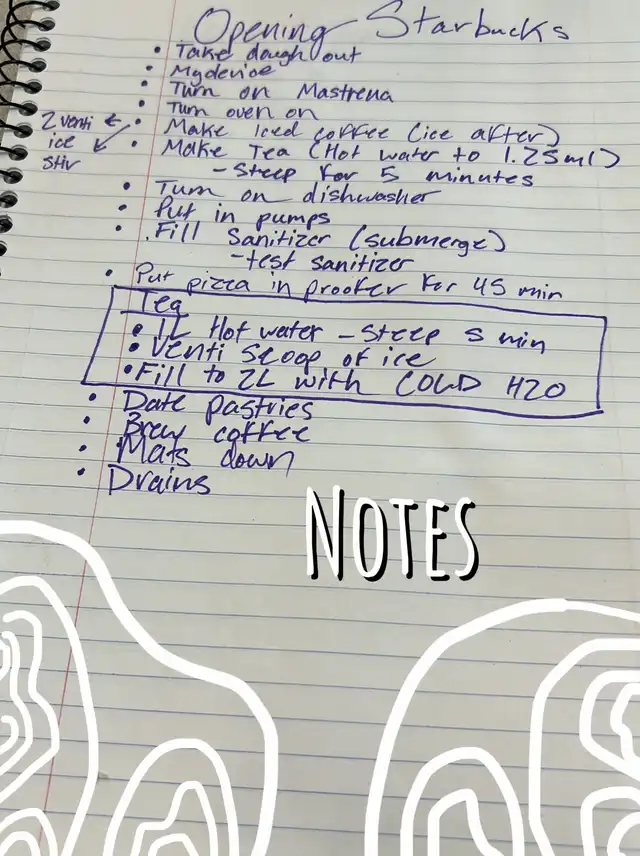 Opening Starbucks
• Take dough out
• Mydevice
• Turn on Mastrena
• Turn oven on
• Make Iced coffee (ice after)
2 venti ice stir
• Make Tea (Hot water to 1.25ml)
- Steep for 5 minutes
• Turn on dishwasher
• Put in pumps
• Fill Sanitizer (submerge)
- test sanitizer
• Put pizza in proofer for 45 min
Tea
• 1L Hot water - Steep 5 min
• Venti Scoop of ice
• Fill to 2L with COLD H2O
• Date pastries
• Brew coffee
• Mats down
• Drains
NOTES